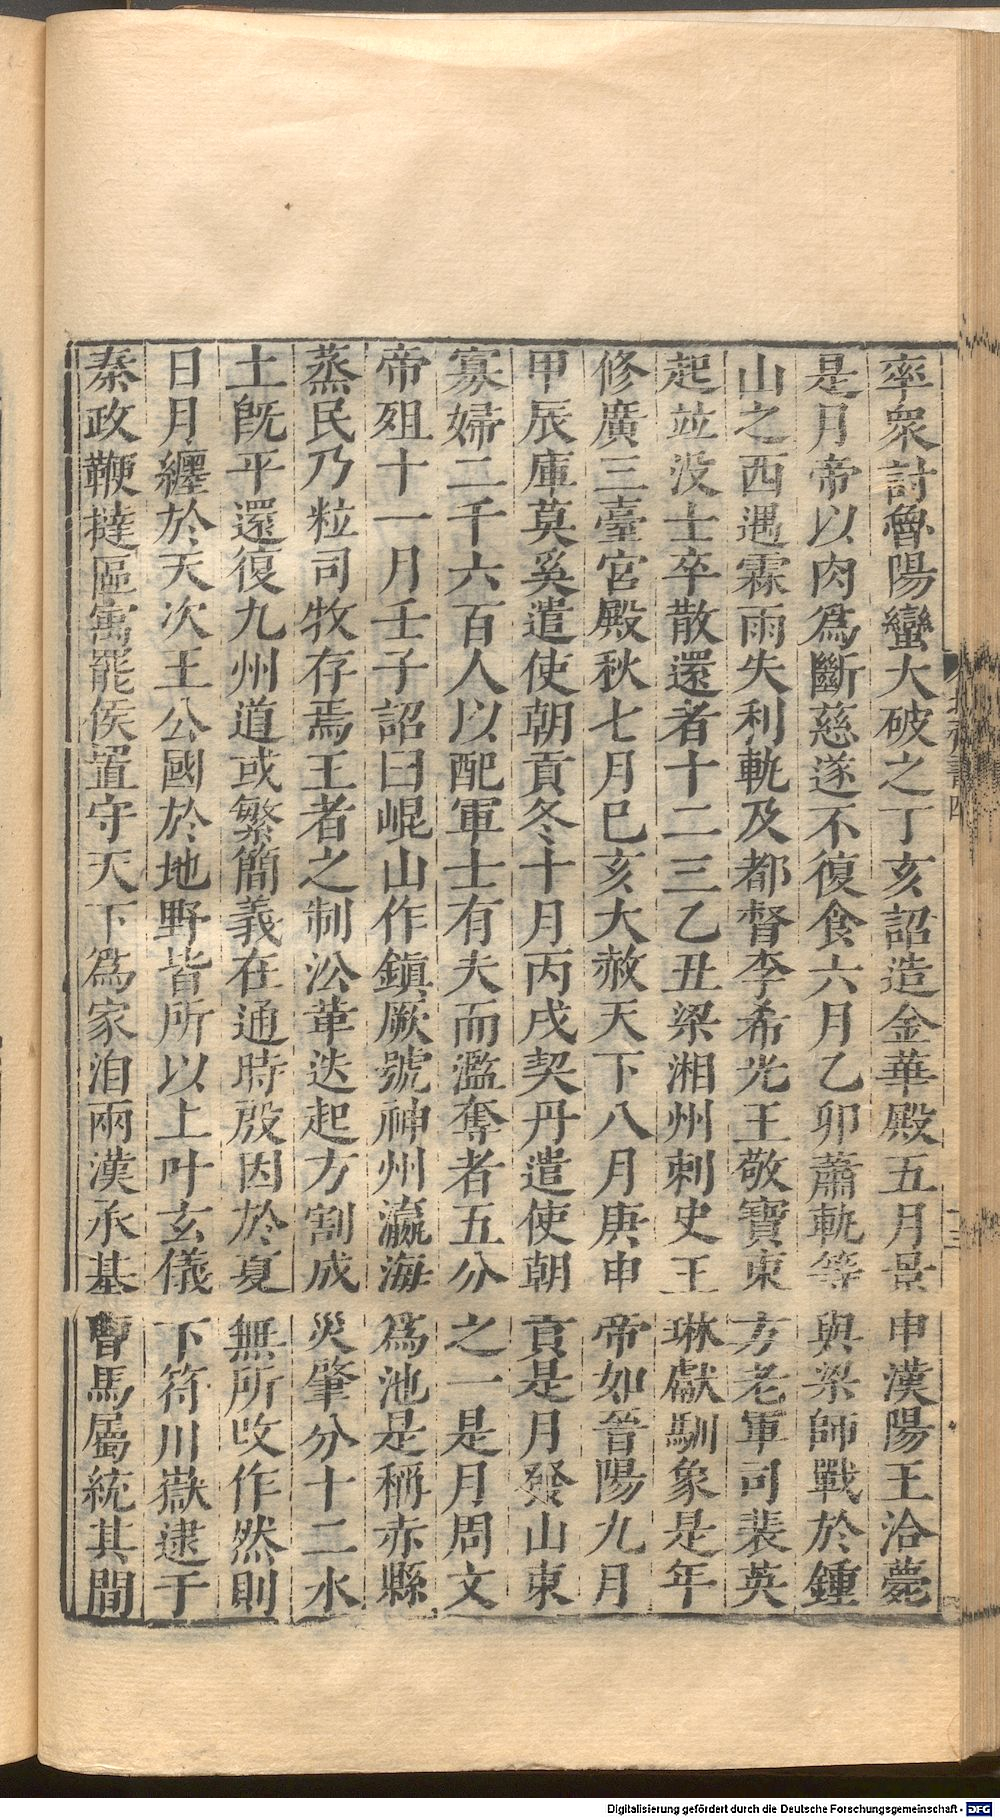 率衆討魯陽蠻大破之丁亥詔造金華殿五月景申漢陽王洽薨
是月帝以肉爲斷慈遂不復食六月乙卯蕭軌等與梁師戰於鍾
山之西遇霖雨失利軌及都督李希光王敬寶東方老軍司裴英
起並没士卒散還者十二三乙丑梁湘州刺史王琳獻馴象是年
修廣三臺宮殿秋七月巳亥大赦天下八月庚申帝如晉陽九月
甲辰庫莫奚遣使朝貢冬十月丙戌契丹遣使朝貢是月發山東
寡婦二千六百人以配軍士有夫而濫奪者五分之一是月周文
帝殂十一月壬子詔曰崐山作鎮厥號神州瀛海爲池是稱赤縣
蒸民乃粒司牧存焉王者之制㳂革迭起方割成災肇分十二水
土既平還復九州道或繁簡義在通時殷因於夏無所改作然則
日月纏於天次王公國於地野皆所以上叶玄儀下符川嶽逮于
秦政鞭撻區㝢罷侯置守天下爲家洎兩漢承基曹馬屬統其間
北齊書四
三
Digitalisierung gefördert durch die Deutsche Forschungsgemeinschaft - DFG